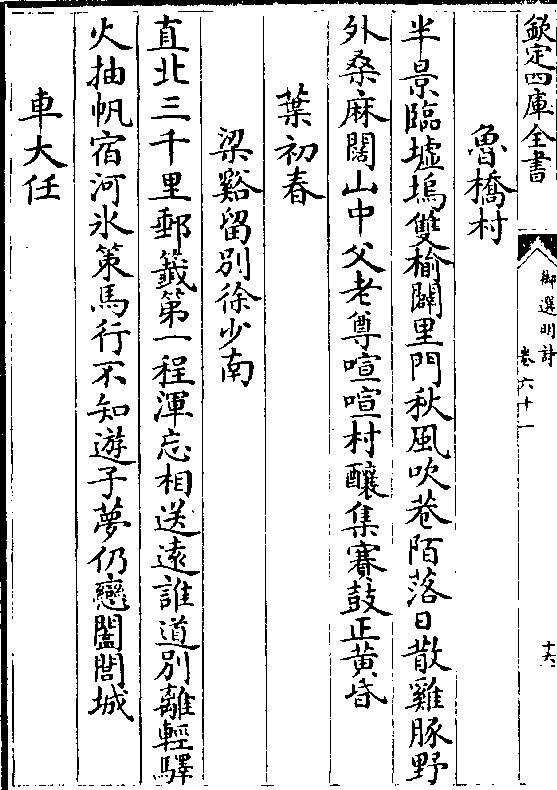 欽定四庫全書
御選明詩
卷六十一
十六
魯橋村
半景臨墟塢雙榆闢里門秋風吹巷陌落日散雞豚野
外桑麻闊山中父老尊喧喧村釀集賽鼓正黃昏
葉初春
梁谿留別徐少南
直北三千里郵籤第一程渾忘相送遠誰道別離輕驛
火抽帆宿河氷策馬行不知遊子夢仍戀闔閭城
車大任